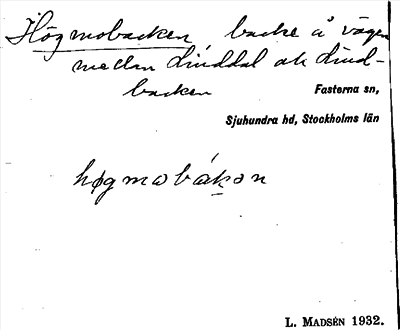 Högmobacken backe å vägen
mellan Lunddal och Lund-
backen
Fasterna sn,
Sjuhundra hd, Stockholms län
høgmobákən
L. MADSÉN 1932.